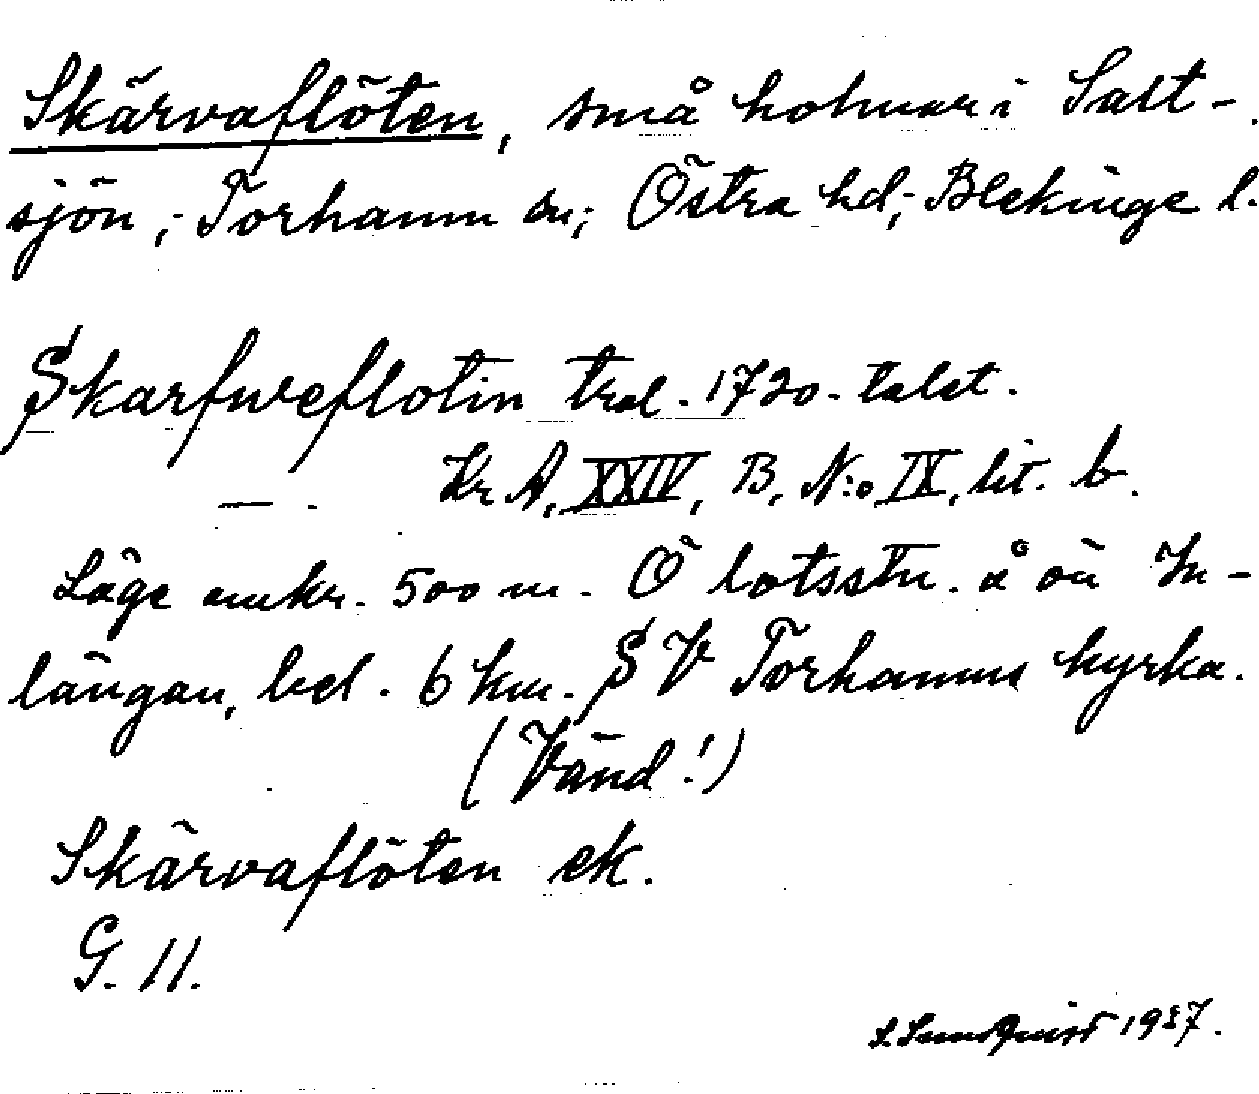 Skärvaflöten, små holmar i Salt-
sjön, Torhamn sn; Östra hd; Blekinge l.
Skarfweflotin trol. 1720-talet.
Kr A, XXIV, B, N:o IX, lit. b.
Läge omkr. 500 m. Ö lotsstn. å ön In-
längan, bel. 6 km. SV Torhamns kyrka.
(Vänd!)
Skärvaflöten ek.
G. 11.
1937.